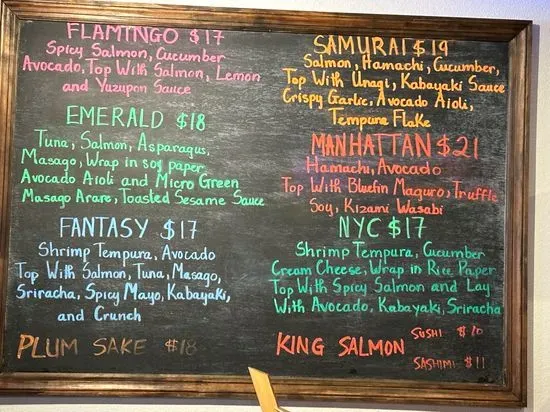 FLAMINGO $17
Spicy Salmon, Cucumber
Avocado, Top With Salmon, Lemon
and Yuzupon Sauce
EMERALD $18
Tuna, Salmon, Asparagus,
Masago, Wrap in soy paper
Avocado Aioli and Micro Green
Masago Arare, Toasted Sesame Sauce
FANTASY $17
Shrimp Tempura, Avocado
Top With Salmon, Tuna, Masago,
Sriracha, Spicy Mayo, Kabayaki,
and Crunch
PLUM SAKE $18
SAMURAI $19
Salmon, Hamachi, Cucumber,
Top With Unagi, Kabayaki Sauce
Crispy Garlic, Avocado Aioli,
Tempura Flake
MANHATTAN $21
Hamachi, Avocado
Top With Bluefin Maguro, Truffle
Soy, Kizami Wasabi
NYC $17
Shrimp Tempura, Cucumber
Cream Cheese, Wrap in Rice Paper
Top With Spicy Salmon and Lay
With Avocado, Kabayaki, Sriracha
KING SALMON
SUSHI $10
SASHIMI $11